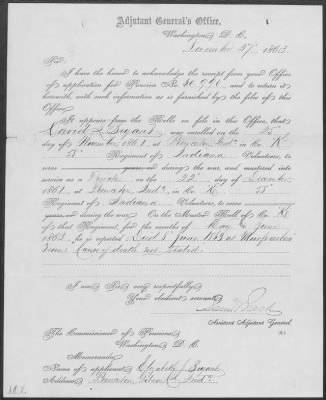 Adjutant General's Office,
Washington, D. C.
December 27th, 1863.
Sir:
I have the honor to acknowledge the receipt from your Office
of application for Pension No. 30,996, and to return it
herewith, with such information as is furnished by the files of this
Office.
It appears from the Rolls on file in this Office, that
David L. Bryant was enrolled on the 25
day of November, 1861, at Princeton, Ind., in Co. K
Regiment of Indiana Volunteers, to serve
years, or during the war, and mustered into
service as a Private on the 22 day of December
1861, at Ind., in Co. K,
Regiment of Indiana Volunteers, to serve
years, or during the war. On the Muster Roll of Co. K
of that Regiment, for the months of May & June
1863, he is reported Died 5 June 1863 at Murfreesboro
Tenn. Cause of death not stated.
I am, Sir, very respectfully,
Your obedient servant,
Assistant Adjutant General.
The Commissioner of Pensions,
Washington, D. C.
Memoranda:
Name of applicant, Elizabeth
Address,